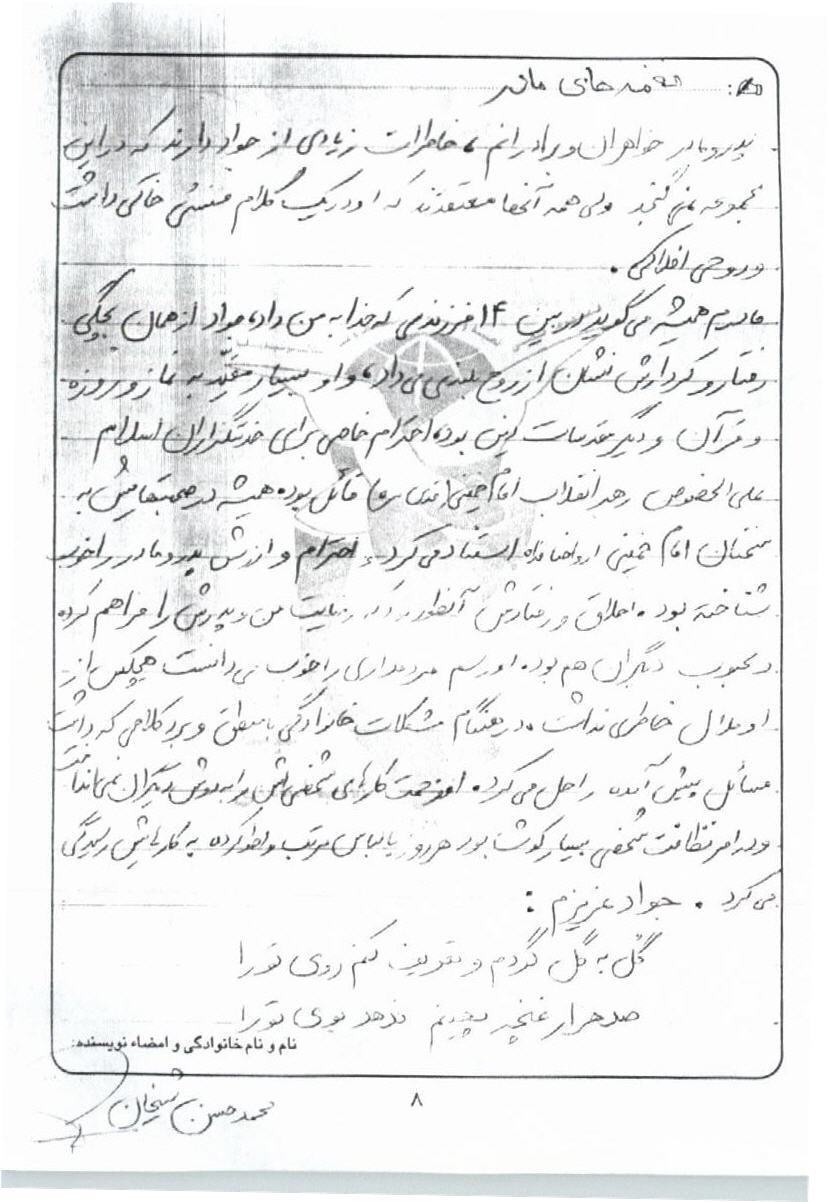 نغمه های مادر
پدر و مادر خواهران و برادرانم، خاطرات زیادی از جواد دارند که در این
مجموعه نمی گنجد ولی همه آنها معتقدند که او در یک کلام منشی خاکی داشت
و روحی افلاکی.
مادرم همیشه می گوید در بین ۱۴ فرزندی که خدا به من داد، جواد از همان بچگی
رفتار و کردارش نشان از روح بلندی می داد، و او بسیار مقید به نماز و روزه
و قرآن و دیگر مقدسات دین بود، احترام خاصی برای خدمتگزاران اسلام
علی الخصوص رهبر انقلاب امام خمینی (قدس سره) قائل بود، همیشه در صحبتهایش به
سخنان امام خمینی ارواحنا فداه استناد می کرد، احترام و ارزش پدر و مادر را خوب
شناخته بود. اخلاق و رفتارش آنطور بود که رضایت من و پدرش را فراهم کرده
و محبوب دیگران هم بود، او رسم مردمداری را خوب می دانست هیچکس از
او ملال خاطری نداشت، در هنگام مشکلات خانوادگی با منطق و برد کلامی که داشت
مسائل پیش آمده را حل می کرد. زحمت کارهای شخصی اش را به دوش دیگران نمی انداخت
و در امر نظافت شخصی بسیار کوشا بود هر روز با لباس مرتب و اطو کرده به کارهایش رسیدگی
می کرد. جواد عزیزم:
گل به گل گردم و تعریف کنم روی تو را
صد هزار غنچه بچینم ندهد بوی تو را
نام و نام خانوادگی و امضاء نویسنده:
محمد حسن شیخیان
۸